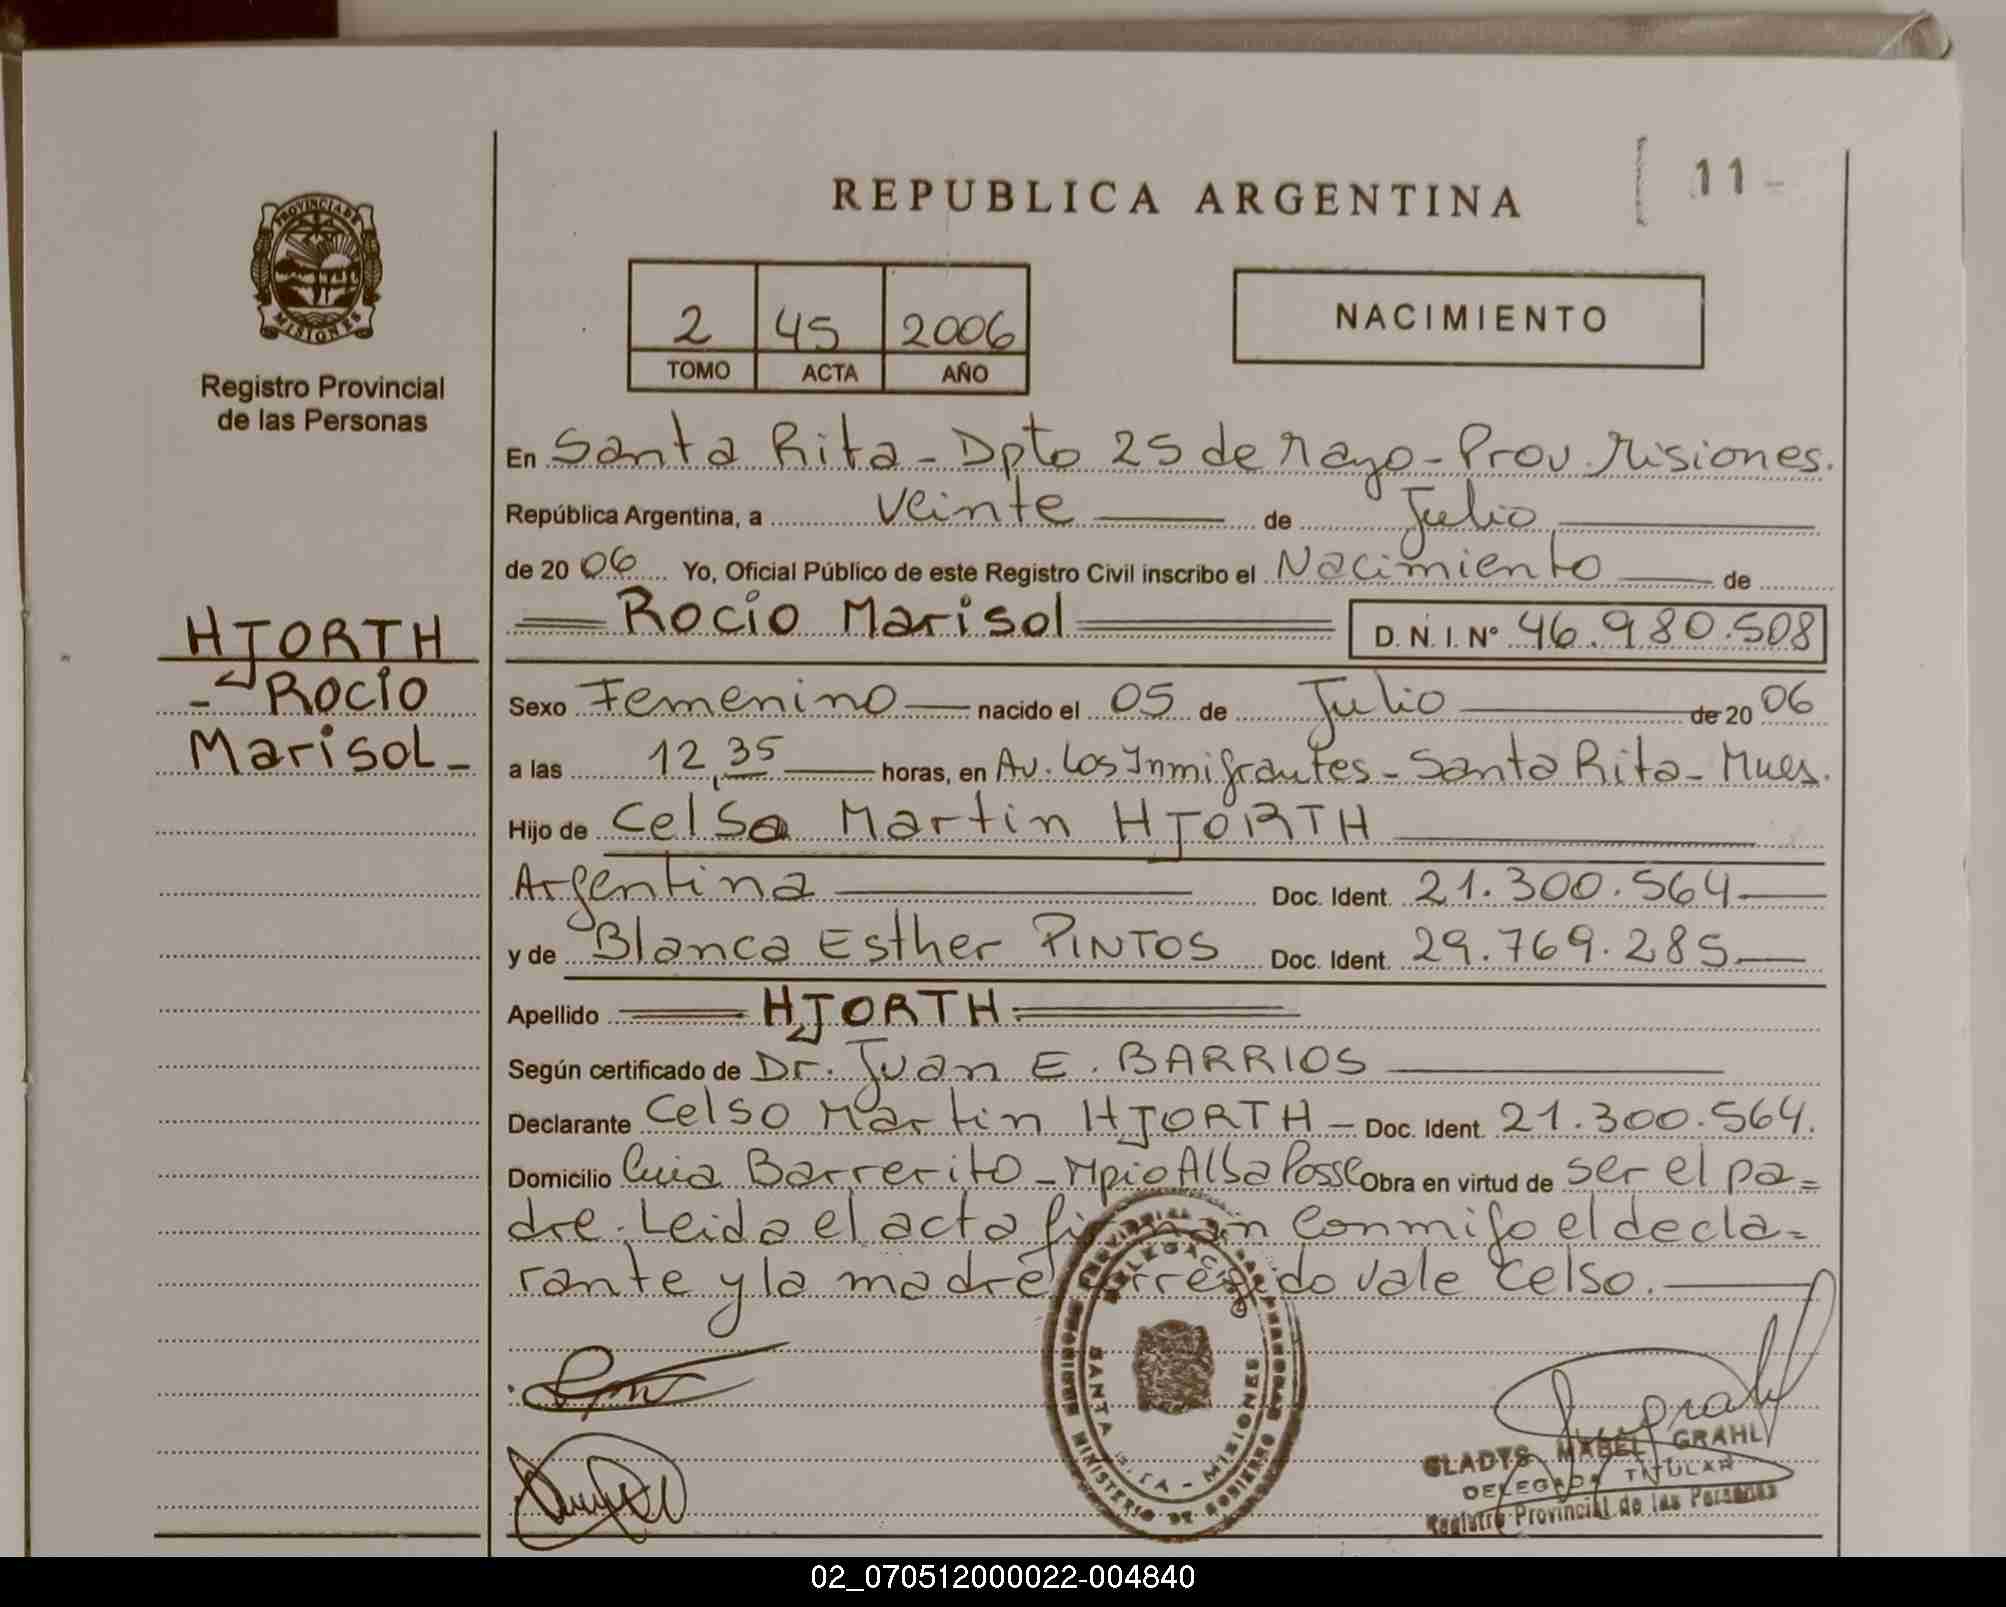 11-
REPUBLICA ARGENTINA
PROVINCIA DE
MISIONES
Registro Provincial
de las Personas
2 45 2006
TOMO ACTA AÑO
NACIMIENTO
En Santa Rita - Dpto 25 de Mayo - Prov. Misiones.
República Argentina, a veinte de Julio
de 20 06 Yo, Oficial Público de este Registro Civil inscribo el Nacimiento de
Rocio Marisol D. N. I. N° 46.980.508
HJORTH
- Rocio
Marisol -
Sexo Femenino nacido el 05 de Julio de 20 06
a las 12,35 horas, en Av. Los Inmigrantes - Santa Rita - Mnes.
Hijo de Celso Martin HJORTH
Argentina Doc. Ident. 21.300.564
y de Blanca Esther PINTOS Doc. Ident. 29.769.285
Apellido HJORTH
Según certificado de Dr. Juan E. BARRIOS
Declarante Celso Martin HJORTH - Doc. Ident. 21.300.564.
Domicilio Barrerito - Mpio Alba Posse Obra en virtud de ser el pa=
dre. Leida el acta firman conmigo el decla=
rante y la madre vale Celso.
DELEGACION
SANTA RITA - MISIONES
MINISTERIO DE GOBIERNO
GLADYS MABEL GRAHL
DELEGADA TITULAR
Registro Provincial de las Personas
02_070512000022-004840